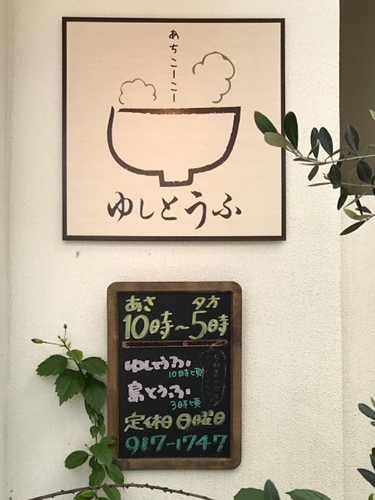 あちこーこー
ゆしとうふ
あさ 夕方
10時～5時
ゆしとうふ
10時頃
島とうふ
3時頃
定休日 日曜日
917-1747